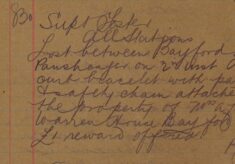 Bo Supt Esker
All Stations
Lost between Bayford &
Panshanger on 2nd inst a
curb bracelet with pa
& safety chain attache
the property of Mrs
Warren House Bayfor
£1 reward offered